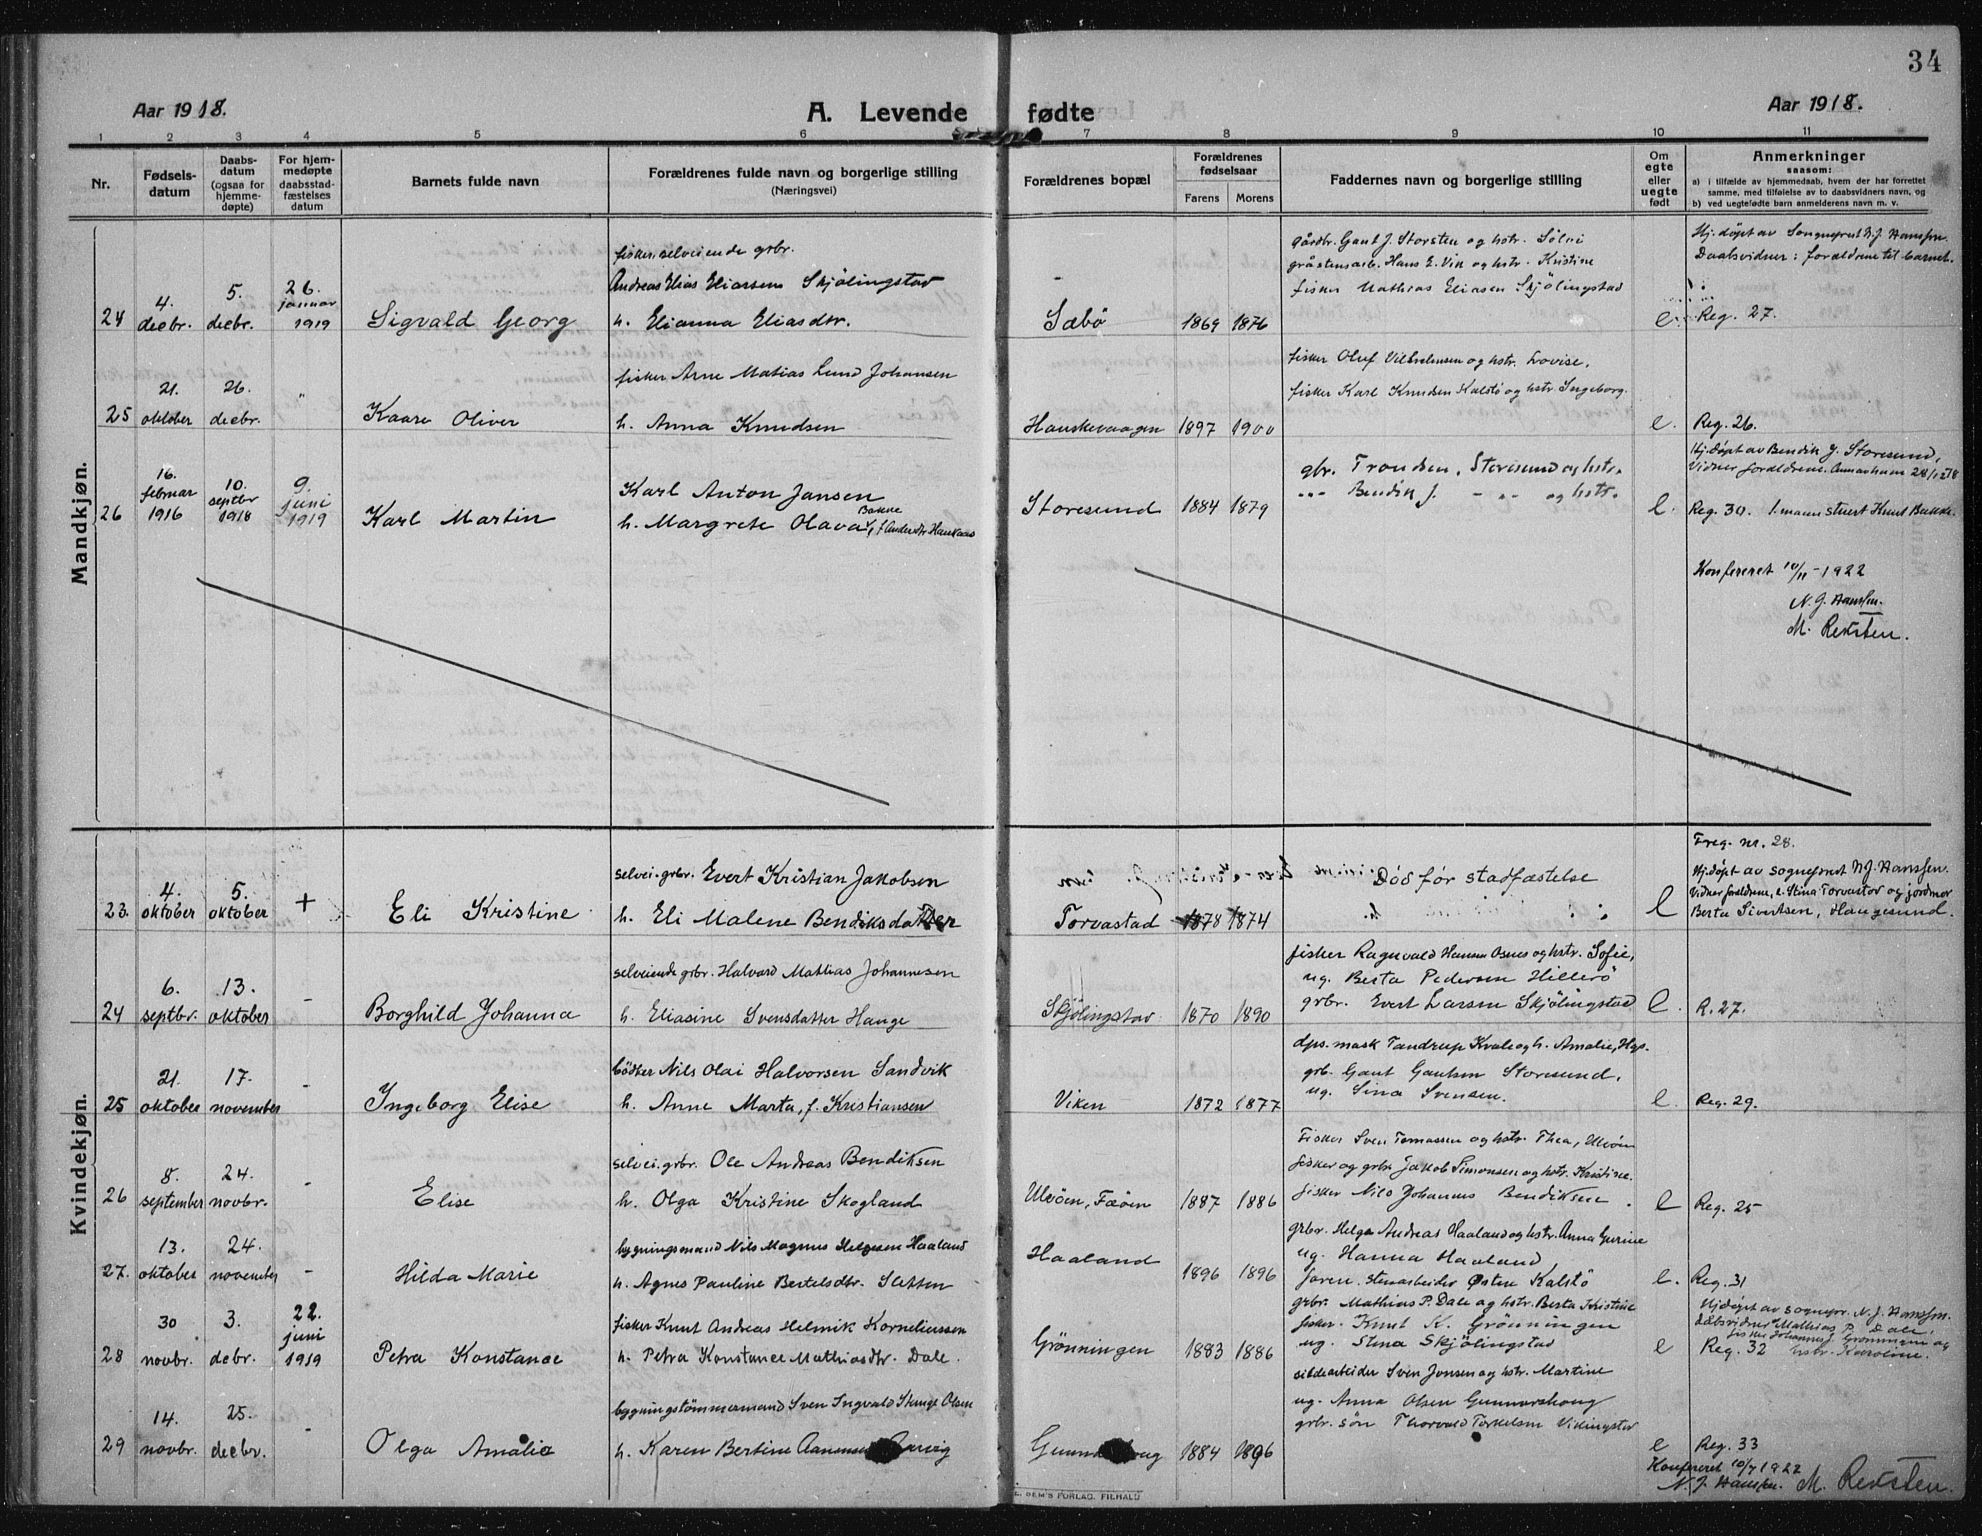 34
Aar 1918.
A. Levende fødte
Aar 1918.
1 2 3 4 5 6 7 8 9 10 11
Nr.
Fødsels-
datum
Daabs-
datum
(ogsaa for
hjemme-
døpte)
For hjem-
medøpte
daabsstad-
fæstelses
datum
Barnets fulde navn
Forældrenes fulde navn og borgerlige stilling
(Næringsvei)
Forældrenes bopæl
Forældrenes
fødselsaar
Farens Morens
Faddernes navn og borgerlige stilling
Om
egte
eller
uegte
født
Anmerkninger
saasom:
a) i tilfælde av hjemmedaab, hvem der har forrettet
samme, med tilføielse av to daabsvidners navn, og
b) ved uegtefødte barn anmelderens navn m. v.
Mandkjøn.
24
4.
decbr.
5.
decbr.
26.
januar
1919
Sigvald Georg
fisker, selveiende grbr.
Andreas Elias Eliassens Skjölingstad
h. Elianna Eliasdtr.
Sæbö
1869 1876
gårdbr. Gaut J. Storsten og hstr. Sølvi
gråstensarb. Hans E. Vik og hstr. Kristine
fisker Mathias Eliasen Skjölingstad
e
Hj.døpt av Sogneprest N. J. Hanssen.
Daabsvidner: forældrene til barnet.
Reg. 27.
25
21.
oktober
26.
decbr.
"
Kaare Oliver
fisker Arne Matias Lund Johansen
h. Anna Knudsen
Hauskevaagen
1897 1900
fisker Oluf Vilhelmsen og hstr. Lovise.
fisker Karl Knudsen Kalstø og hstr. Ingeborg.
e.
Reg. 26.
26
16.
februar
1916
10.
septbr
1918
9.
juni
1919
Karl Martin
Karl Anton Jansen
Bakke
h. Margrete Olava, f. Andersdtr Haukaas
Storesund
1884 1879
gbr. Trondsen, Storesund og hstr.
-"- Bendik J. - " - og hstr.
e.
Hj.døpt av Bendik J. Storesund,
Reg. 30. 1. mann stuert Knut Bakke.
Konfereret 10/11 - 1922
N. J. Hanssen.
M. Reksten.
Kvindekjøn.
23.
4.
oktober
5.
oktober
+
Eli Kristine
selvei. grbr. Evert Kristian Jakobsen
h. Eli Malene Bendiksdatter
Torvastad
1878 1874
Död för stadfæstelse
e
Freg. nr. 28.
Hj.døpt av sogneprest N. J. Hanssen.
Vidner forældrene, e. Stina Torvastad og jordmor
Berta Sivertsen, Haugesund.
24
6.
septbr.
13.
oktober
-
Borghild Johanna
selveiende grbr. Halvard Mathias Johannesen
h. Eliasine Svensdatter Hauge
Skjölingstad
1870 1890
fisker Ragnvald Hansen Osnes og hstr. Sofie,
ug. Berta Pedersen Hillerö
grbr. Evert Larsen Skjölingstad
e.
R. 27.
25
21.
oktober
17.
november
-
Ingeborg Elise
bödker Nils Olai Halvorsen Sandvik
h. Anne Marta, f. Kristiansen
Viken
1872 1877
dps. mask Tandrup Kvale og h. Amalie, Hgs.
grb. Gaut Gautsen Storesund,
ug. Sina Svensen.
e.
Reg. 29.
26
8.
september
24.
novbr.
-
Elise
selvei. grbr. Ole Andreas Bendiksen
h. Olga Kristine Skogland
Ulvöen, Fæöen
1887 1886
Fisker Sven Tomassen og hstr. Thea, Ulvöen
fisker og grbr. Jakob Simonsen og hstr. Kristine.
fisker Nils Johannes Bendiksen
e
Reg. 25
27.
13.
oktober
24.
november
-
Hilda Marie
bygningsmand Nils Magnus Helgesen Haaland
h. Agnes Pauline Bertelsdtr. Sletten
Haaland
1896 1896
grbr. Helge Andreas Haaland og hstr. Anna Gurine
ug. Hanna Haaland
foren. stenarbeider Østen Kalstö
e.
Reg. 31
28
30
novbr.
3.
debr.
22.
juni
1919
Petra Konstance
fisker Knut Andreas Helmik Korneliussen
h. Petra Konstance Mathiasdtr. Dale.
Grönningen
1883 1886
grbr. Mathias P. Dale og hstr. Berta Kristine
fisker. Knut K. Grönningen
ug. Stina Skjölingstad
e
Hjdøpt av sognepr. N. J. Hanssen.
Dåbsvidner Mathias P. Dale,
fisker Johannes J. Grönningen og
Reg. 32 hstr. Karoline.
29
14.
novbr.
25.
decbr.
-
Olga Amalia
bygningstömmermand Sven Ingvald Stange Olsen
h. Karen Bertine Aanensen
1884 1896
sildearbeider Sven Jonsen og hstr. Martine
ug. Anna Olsen Gunnarshaug
grbr. sön Thorvald Torkelsen Vikingstad
e
Reg. 33
Konfereret 10/7 1922
N. J. Hanssen. M. Reksten.